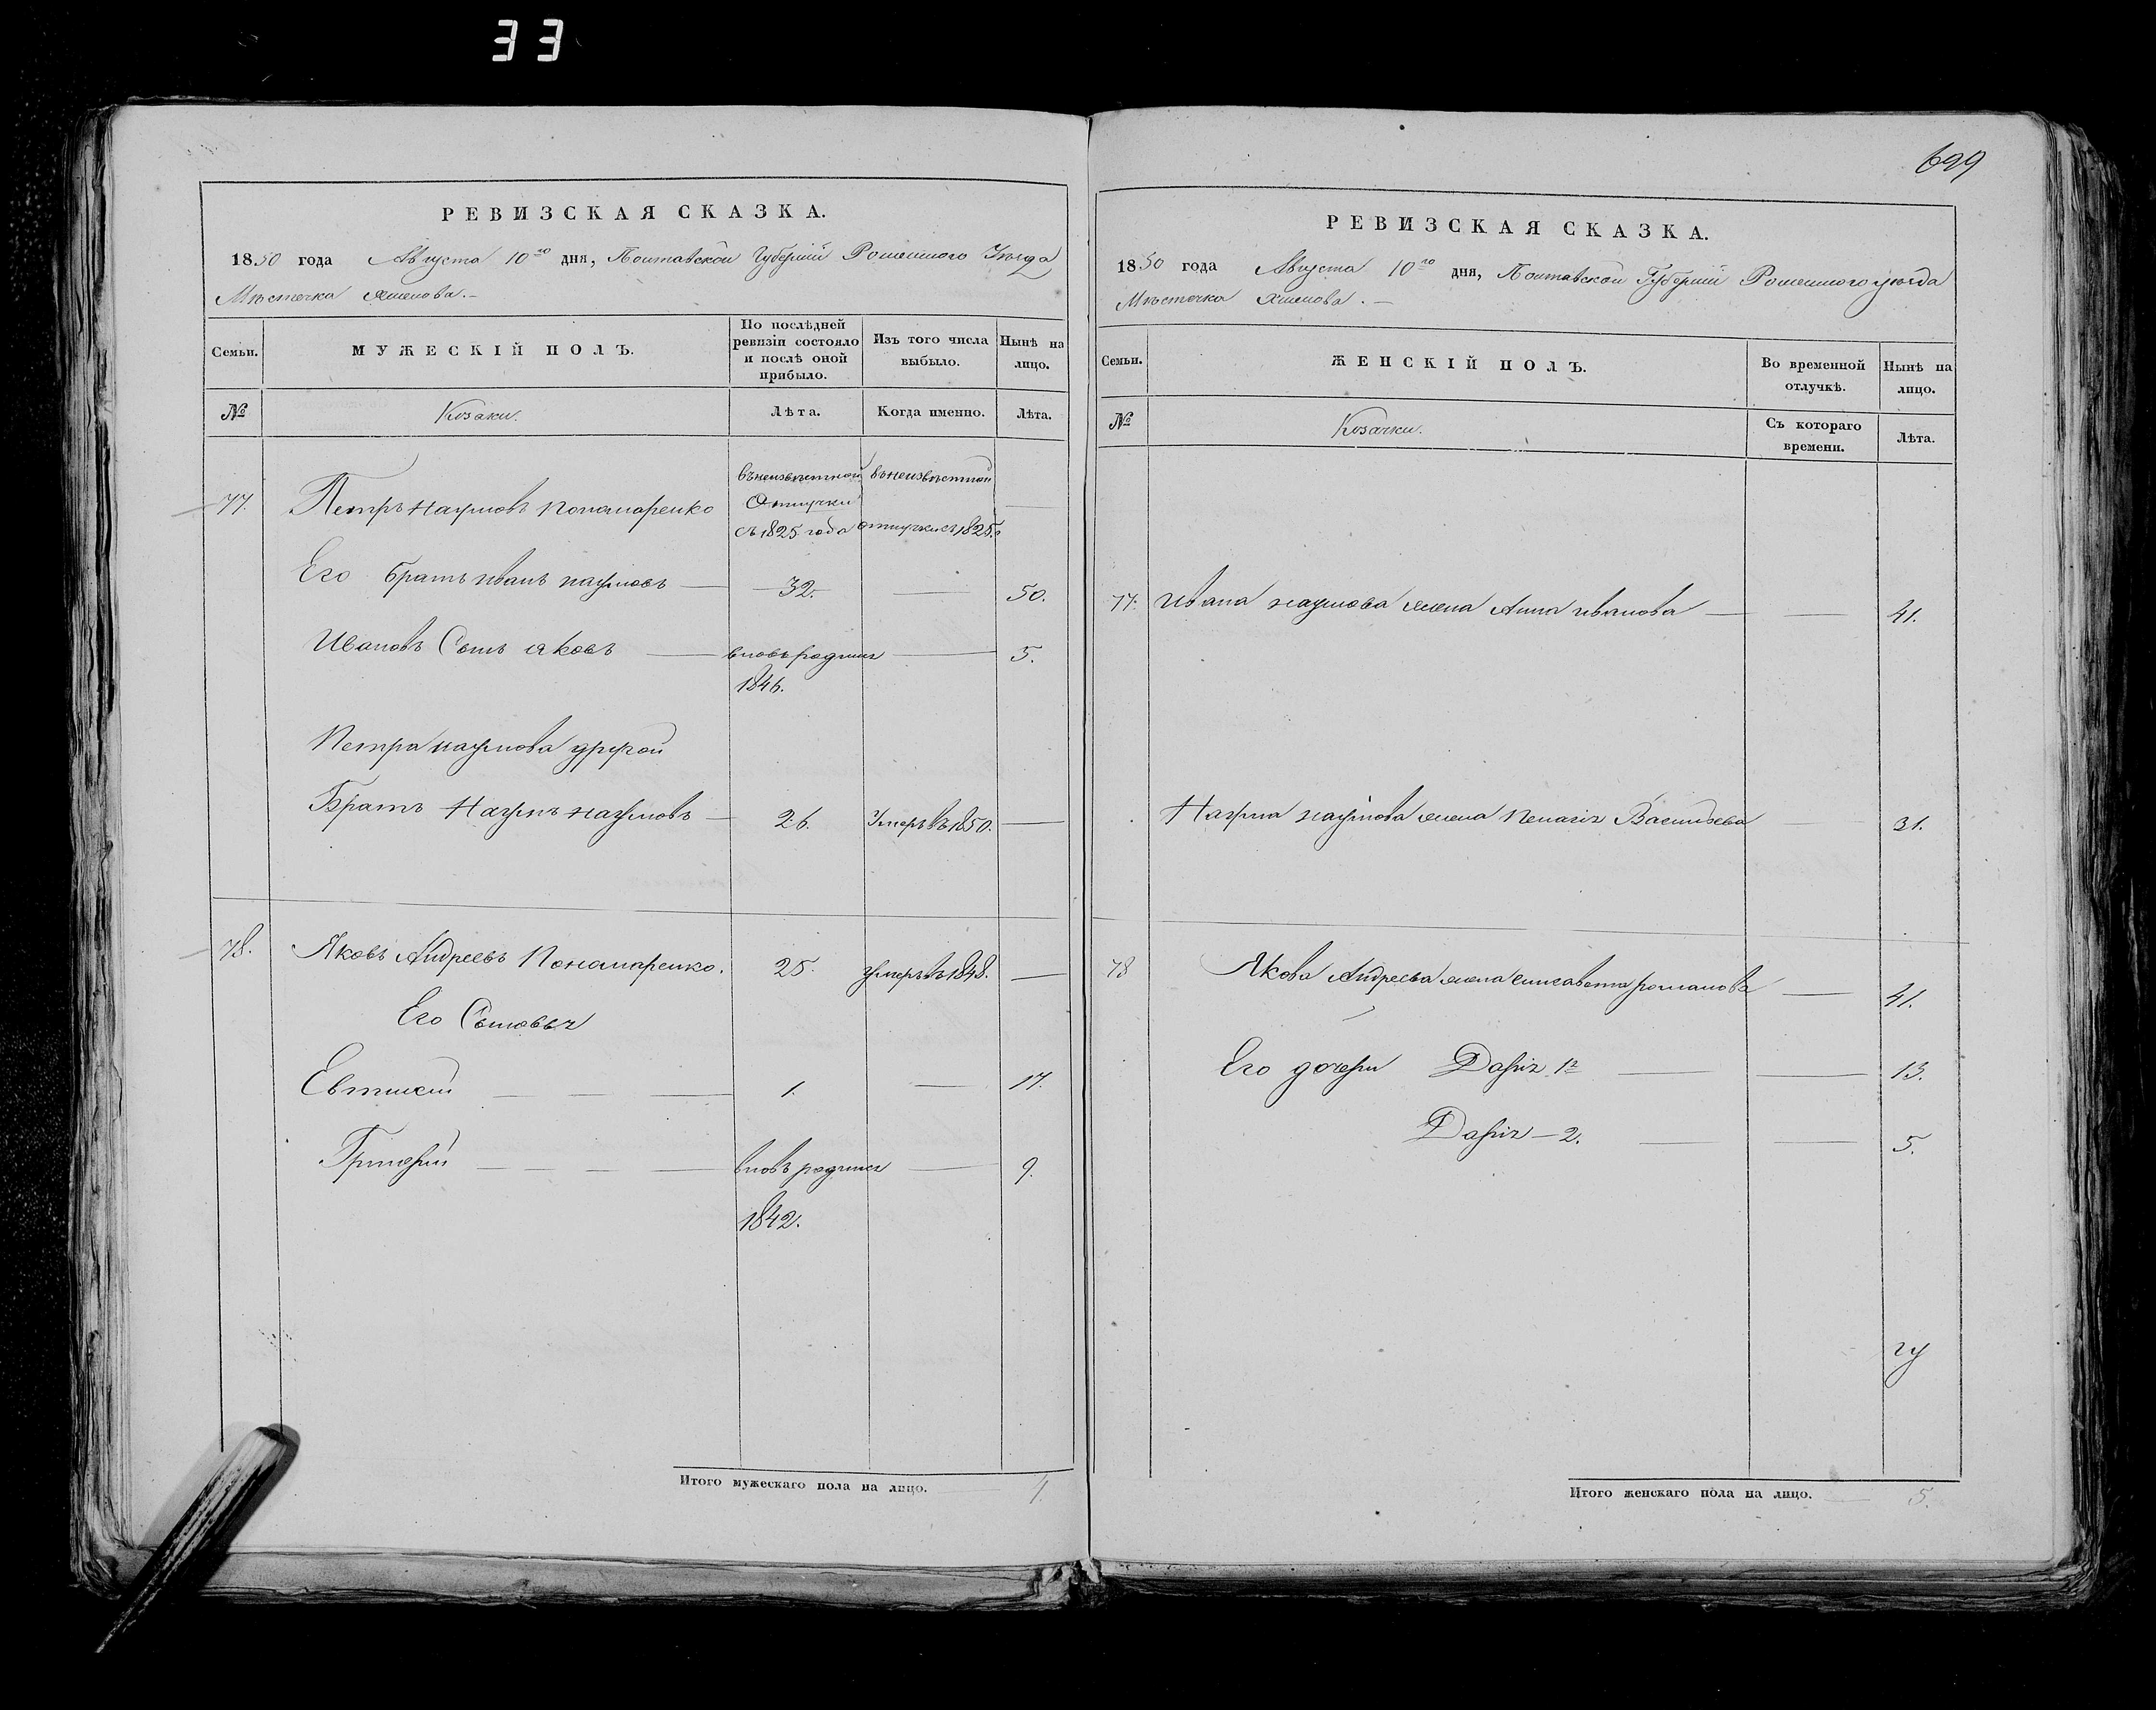 33
РЕВИЗСКАЯ СКАЗКА.
1850 года Августа 10го дня, Полтавской Губерніи Роменского Уѣзда
Мѣстечка
Семьи.
МУЖЕСКІЙ ПОЛЪ.
По послѣдней ревизіи состояло и послѣ оной прибыло.
Изъ того числа выбыло.
Нынѣ на лицо.
№
Козаки.
Лѣта.
Когда именно.
Лѣта.
77. Петръ Наумовъ Пономаренко
въ неизвѣстной Отлучки съ 1825 года
въ неизвѣстной отлучки съ 1825.
Его братъ Иванъ Наумовъ — 32. — 50.
Ивановъ Сынъ Яковъ — вновь родился — 5.
1846.
Петра Наумова другой
Братъ Наумъ Наумовъ — 26. Умеръ въ 1850. —
78. Яковъ Андреевъ Пономаренко. 25. умеръ въ 1848. —
Его Сыновья
Евтихій — — — 1. — 17.
Григорій — — — — вновь родился — 9.
1842.
Итого мужескаго пола на лицо. — 4.
699
РЕВИЗСКАЯ СКАЗКА.
1850 года Августа 10го дня, Полтавской Губерніи Роменского уѣзда
Мѣстечка
Семьи.
ЖЕНСКІЙ ПОЛЪ.
Во временной отлучкѣ.
Нынѣ на лицо.
№
Козачки.
Съ котораго времени.
Лѣта.
77. Ивана Наумова жена Анна Иванова — — 41.
Наума Наумова жена Пелагія Васильева — 31.
78 Якова Андреева жена Елисавета Романова — 41.
Его дочери Дарія 1я — — 13.
Дарія — 2. — — 5.
Итого женскаго пола на лицо. — 5.